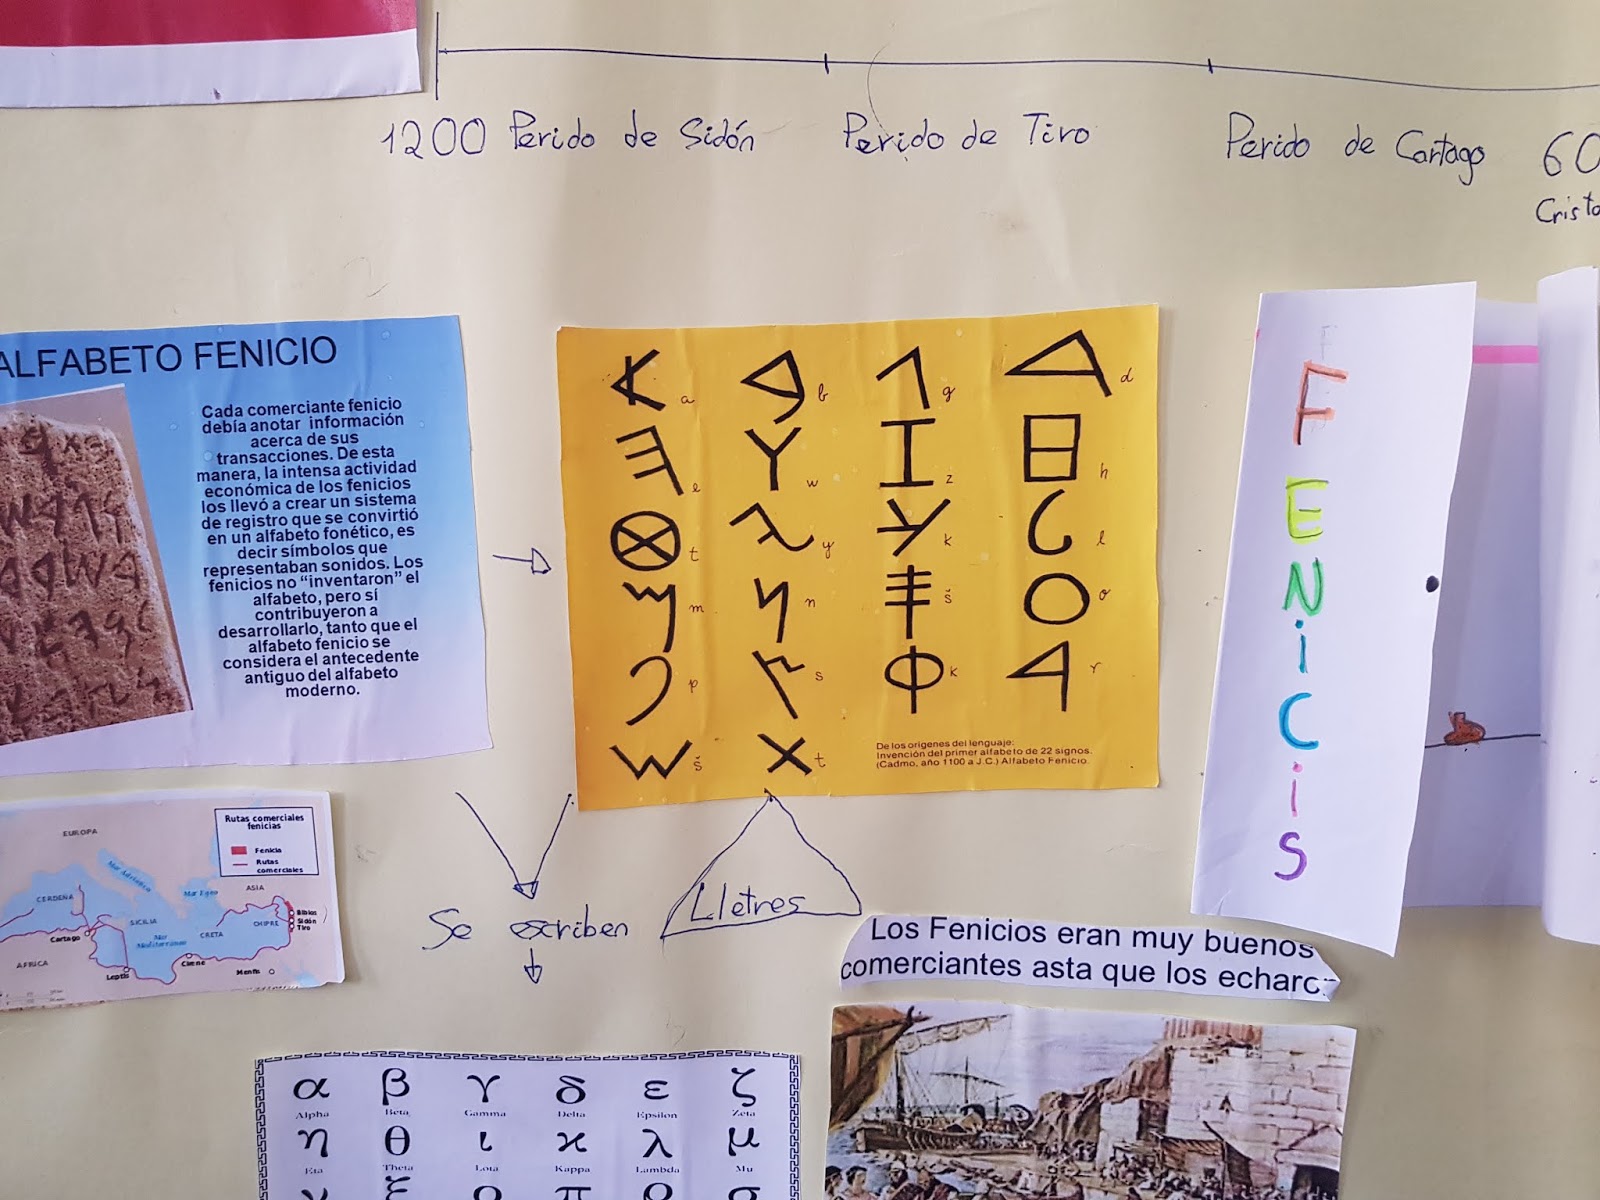 1200 Perido de Sidón Perido de Tiro Perido de Cartago 60
Cristo
ALFABETO FENICIO
Cada comerciante fenicio
debía anotar información
acerca de sus
transacciones. De esta
manera, la intensa actividad
económica de los fenicios
los llevó a crear un sistema
de registro que se convirtió
en un alfabeto fonético, es
decir símbolos que
representaban sonidos. Los
fenicios no “inventaron” el
alfabeto, pero sí
contribuyeron a
desarrollarlo, tanto que el
alfabeto fenicio se
considera el antecedente
antiguo del alfabeto
moderno.
a b g d
e w z h
t y k l
m n š o
p s k r
š t
De los orígenes del lenguaje:
Invención del primer alfabeto de 22 signos.
(Cadmo, año 1100 a J.C.) Alfabeto Fenicio.
FENiCiS
Rutas comerciales
fenicias
Fenicia
Rutas
comerciales
EUROPA
Mar Adriático
Mar Egeo
ASIA
CERDEÑA
SICILIA
CRETA
CHIPRE
Biblos
Sidón
Tiro
Cartago
Mar
Mediterráneo
AFRICA
Leptis
Cirene
Menfis
Se escriben
Lletres
Los Fenicios eran muy buenos
comerciantes asta que los echaro
α β γ δ ε ζ
Alpha Beta Gamma Delta Epsilon Zeta
η θ ι κ λ μ
Eta Theta Iota Kappa Lambda Mu
ν ξ ο π ρ σ